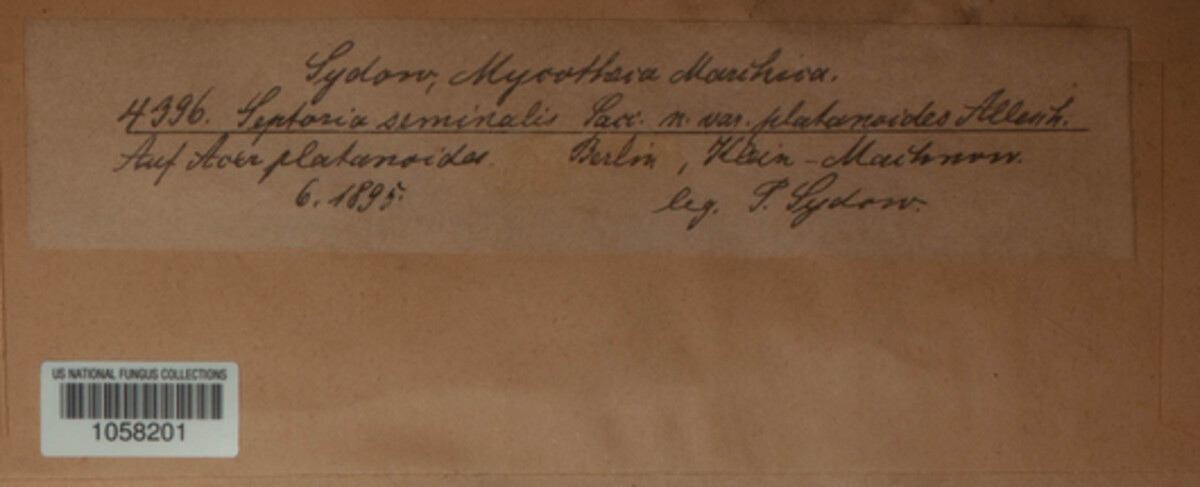 Sydow, Mycotheca Marchica.
4396. Septoria seminalis Sacc. n. var. platanoides Allesch.
Auf Acer platanoides. Berlin, Klein-Machnow.
6. 1895. leg. P. Sydow.
US NATIONAL FUNGUS COLLECTIONS
1058201